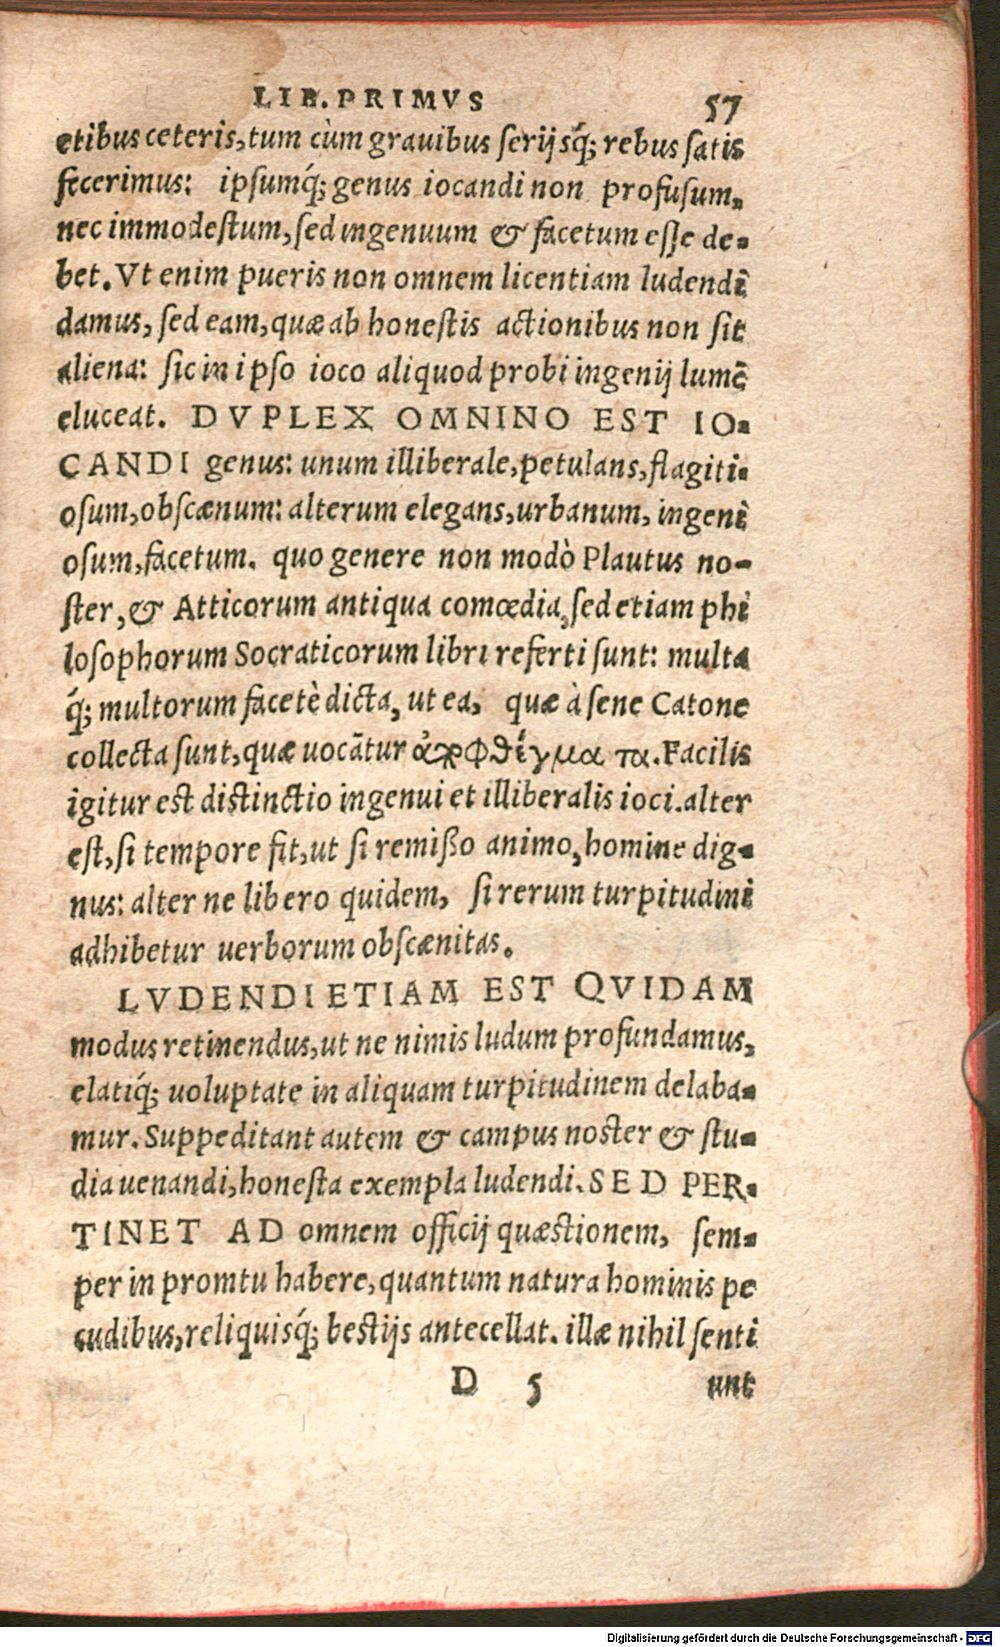 LIB. PRIMVS 57
etibus ceteris, tum cùm grauibus serijsq́; rebus satis
fecerimus: ipsumq́; genus iocandi non profusum,
nec immodestum, sed ingenuum & facetum esse de-
bet. Vt enim pueris non omnem licentiam ludendi
damus, sed eam, quæ ab honestis actionibus non sit
aliena: sic in ipso ioco aliquod probi ingenij lumẽ
eluceat. DVPLEX OMNINO EST IO-
CANDI genus: unum illiberale, petulans, flagiti-
osum, obscænum: alterum elegans, urbanum, ingeni
osum, facetum. quo genere non modò Plautus no-
ster, & Atticorum antiqua comœdia, sed etiam phi
losophorum Socraticorum libri referti sunt: multa
q́; multorum facetè dicta, ut ea, quæ à sene Catone
collecta sunt, quæ uocãtur ἀποφθέγματα. Facilis
igitur est distinctio ingenui et illiberalis ioci. alter
est, si tempore fit, ut si remißo animo, homine dig-
nus: alter ne libero quidem, si rerum turpitudini
adhibetur uerborum obscænitas.
LVDENDI ETIAM EST QVIDAM
modus retinendus, ut ne nimis ludum profundamus,
elatiq́; uoluptate in aliquam turpitudinem delaba-
mur. Suppeditant autem & campus noster & stu-
dia uenandi, honesta exempla ludendi. SED PER-
TINET AD omnem officij quæstionem, sem-
per in promtu habere, quantum natura hominis pe
cudibus, reliquisq́; bestijs antecellat. illæ nihil senti
D 5 unt
Digitalisierung gefördert durch die Deutsche Forschungsgemeinschaft - DFG